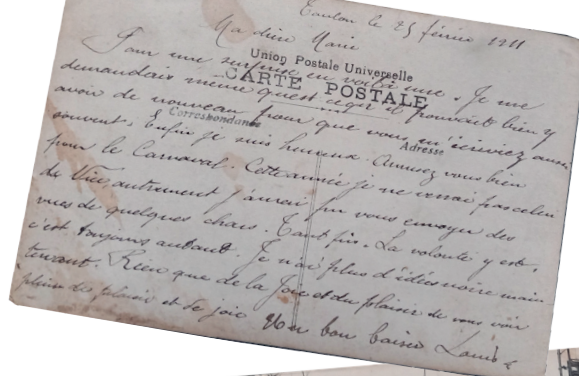 Toulon le 25 février 1911
Ma chère Marie
Union Postale Universelle
CARTE POSTALE
Correspondance
Adresse
Pour une surprise en voilà une. Je me
demandais même qu'est ce qu'il pouvait bien y
avoir de nouveau pour que vous m'écriviez aussi
souvent, Enfin je suis heureux. Amusez vous bien
pour le Carnaval. Cette année je ne verrai pas celui
de Nice, autrement j'aurai pu vous envoyer des
vues de quelques chars. Tant pis. La volonté y est,
c'est toujours autant. Je n'ai plus d'idées noire main
tenant. Rien que de la Joie et du plaisir de vous voir
pleine de plaisir et de joie Un bon baiser Louis